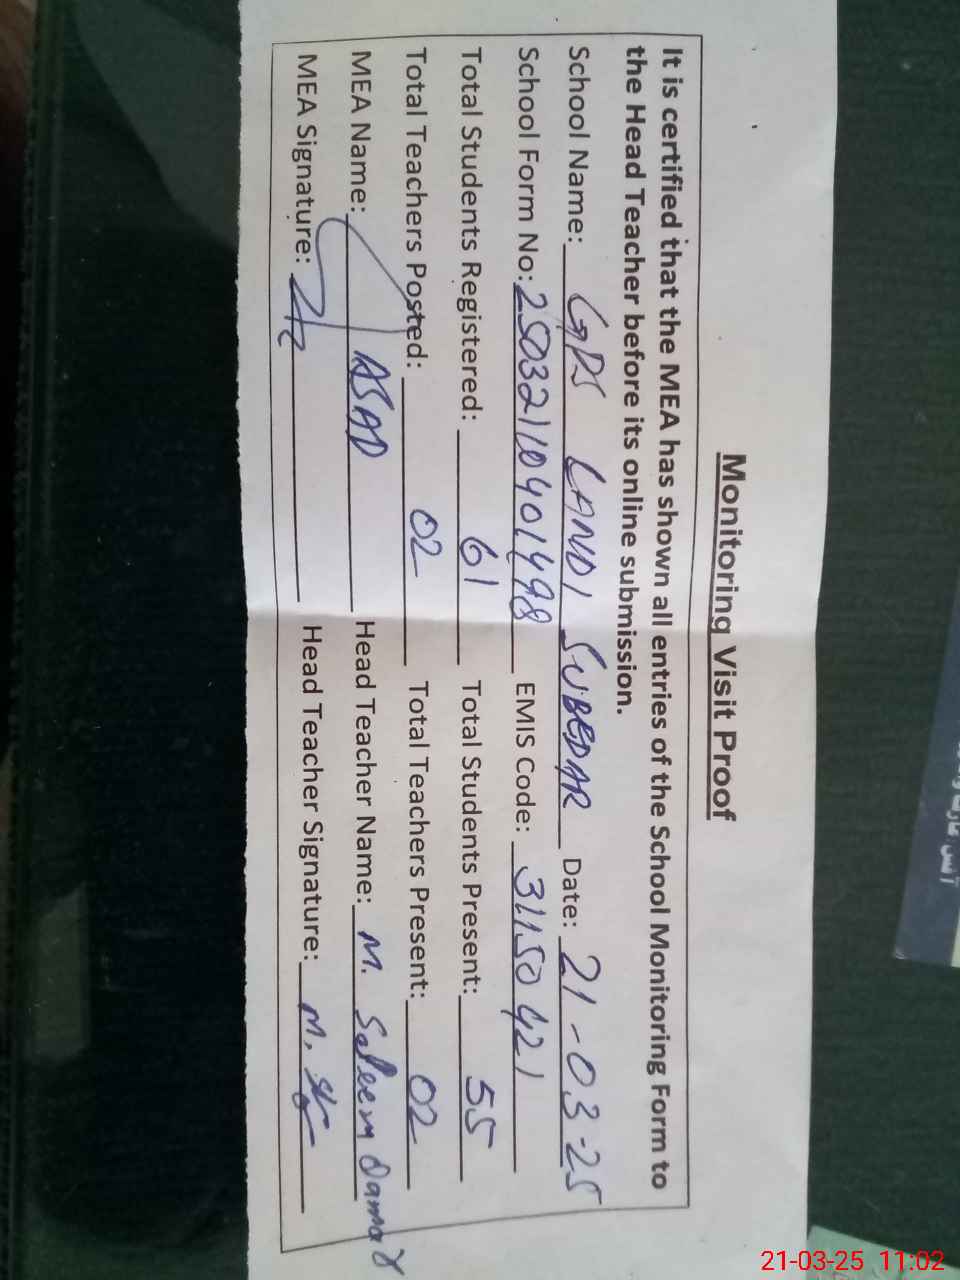 Monitoring Visit Proof
It is certified that the MEA has shown all entries of the School Monitoring Form to
the Head Teacher before its online submission.
School Name: GPS LANDI SUBEDAR Date: 21-03-25
School Form No: 25032110401498 EMIS Code: 31150421
Total Students Registered: 61 Total Students Present: 55
Total Teachers Posted: 02 Total Teachers Present: 02
MEA Name: ASAD Head Teacher Name: M. Saleem
MEA Signature: Head Teacher Signature: M.
21-03-25 11:02